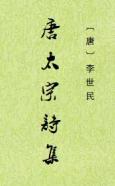 唐太宗詩集
〔唐〕李世民